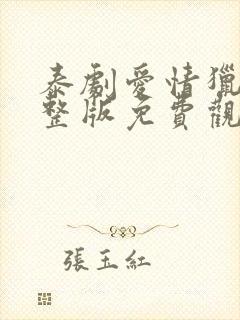 泰劇愛情獵
整版免費觀
張玉紅